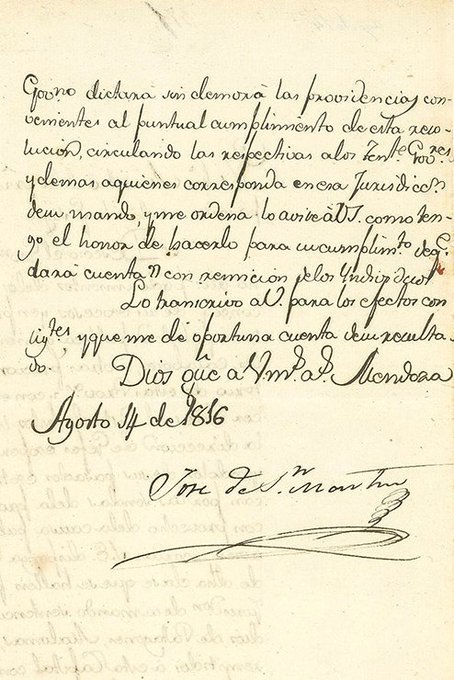 Gov.no dictara sin demorà las providencias con-
venientes al puntual cumplimiento de esta reso-
lucion, circulando las respectivas a los Ten.tes Gov.res
y demas aquienes corresponda en esa Jurisdic.on
de su mando, y me ordena lo avise à V.S. como ten-
go el honor de hacerlo para su cumplim.to de q.e
dará cuenta con remision de los Individuos
Lo transcrivo a V. para los efectos con-
sig.tes, y que me dé oportuna cuenta de su resulta-
do.
Dios gũe a V. m.s a.s Mendoza
Agosto 14 de 1816
Jose de S.n Martin